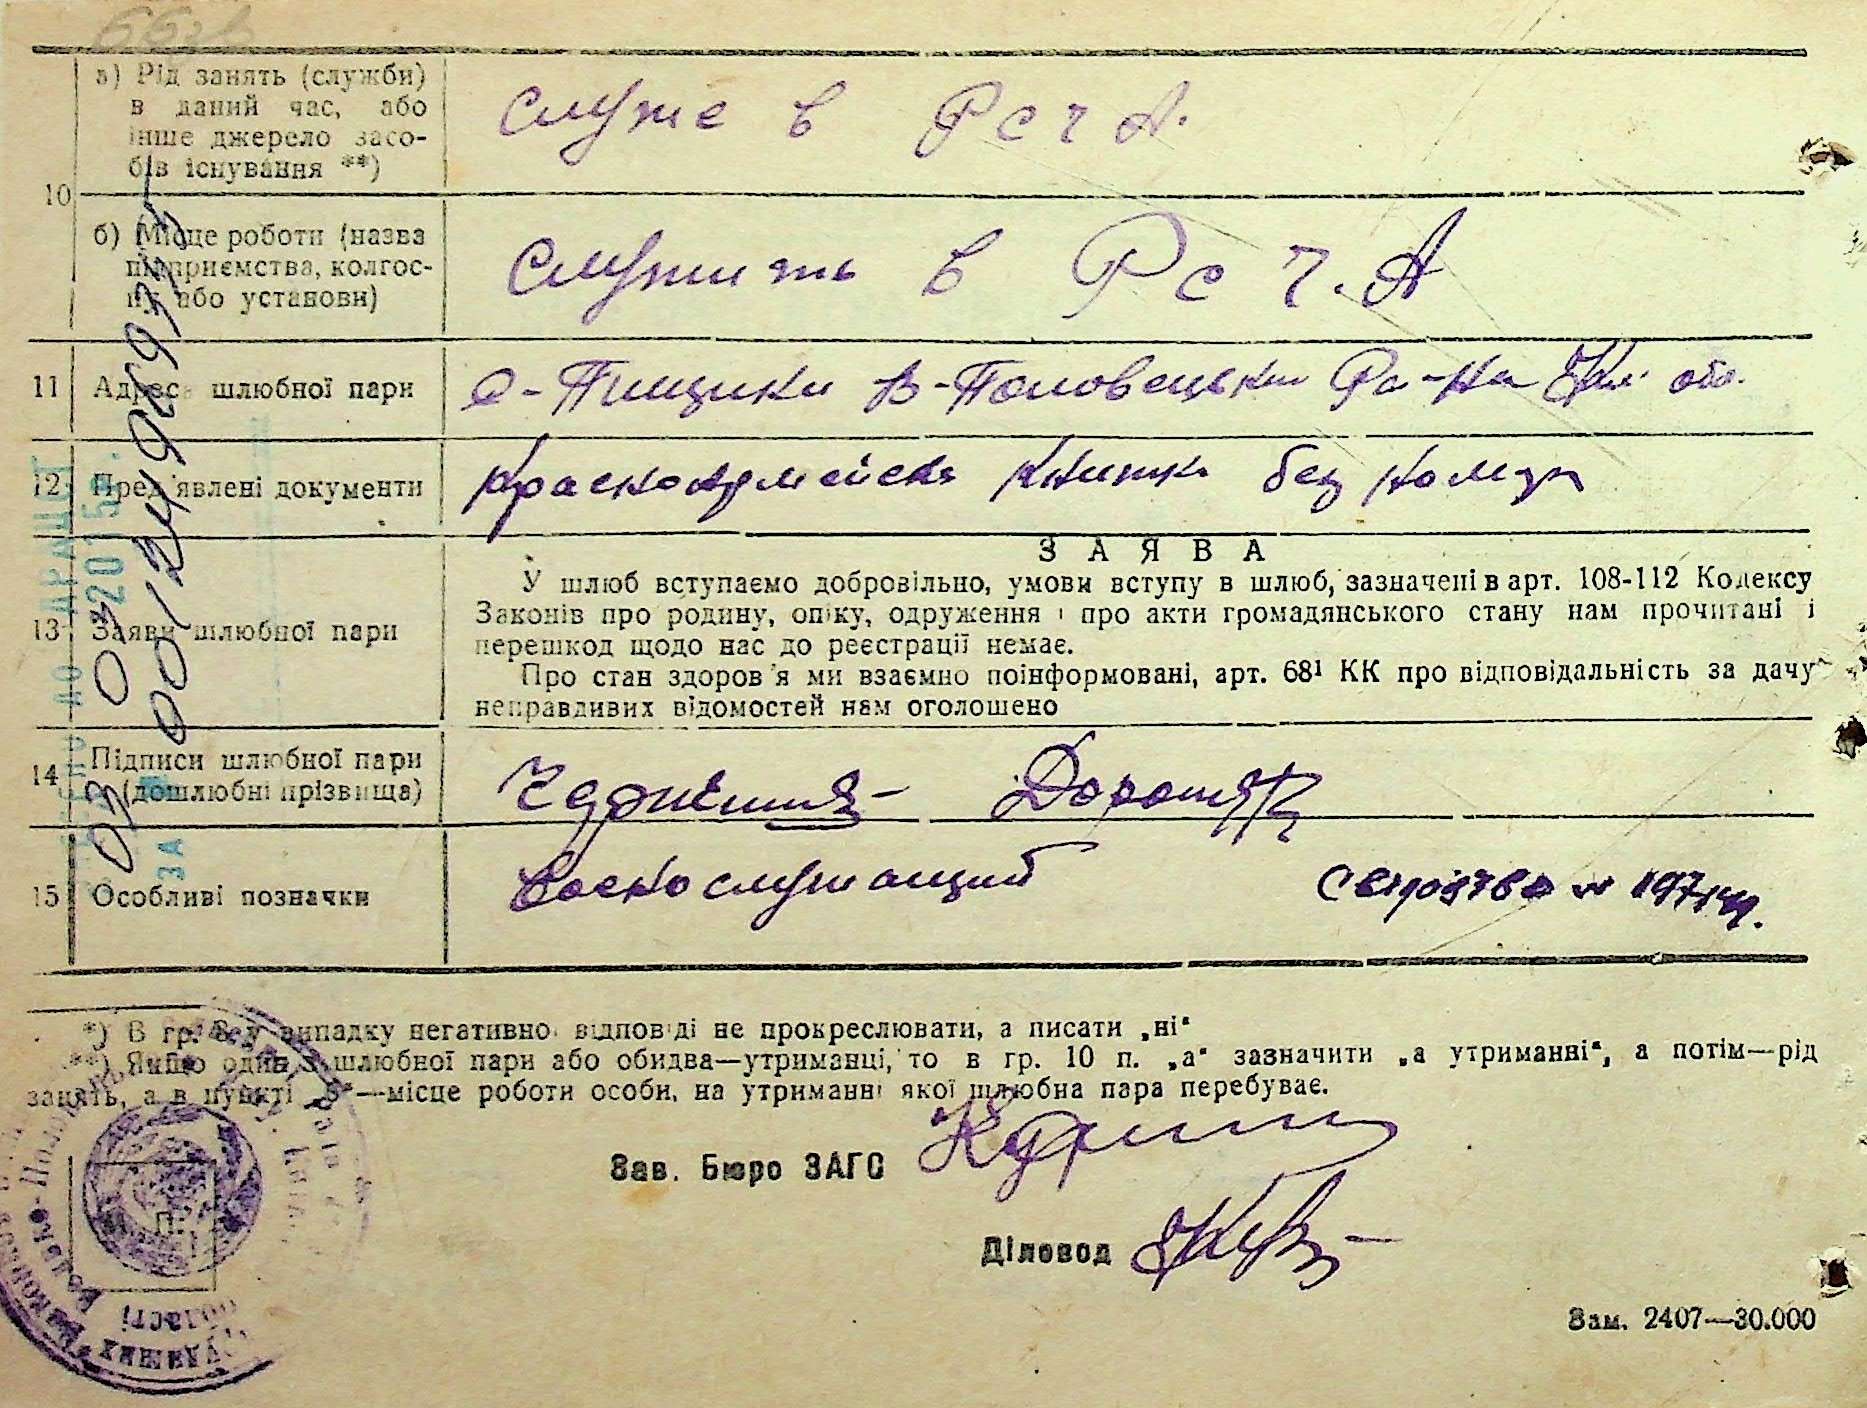 а) Рід занять (служби)
в даний час, або
інше джерело засо-
бів існування **)
служе в Р с ч А.
10
б) Місце роботи (назва
підприємства, колгос-
пу або установи)
служить в Р с ч. А
11 Адреса шлюбної пари
с-Пищики В-Половецький Ра-на Київ обл.
12 Пред'явлені документи
красноармейска книжка без номера
ЗАЯВА
13 Заяви шлюбної пари
У шлюб вступаємо добровільно, умови вступу в шлюб, зазначені в арт. 108-112 Кодексу
Законів про родину, опіку, одруження і про акти громадянського стану нам прочитані і
перешкод щодо нас до реєстрації немає.
Про стан здоров'я ми взаємно поінформовані, арт. 68¹ КК про відповідальність за дачу
неправдивих відомостей нам оголошено
14 Підписи шлюбної пари
(дошлюбні прізвища)
15 Особливі позначки
Военослужащий
00124969775
2015
ЗА
*) В гр. 8 у випадку негативної відповіді не прокреслювати, а писати „ні“
**) Якщо один з шлюбної пари або обидва—утриманці, то в гр. 10 п. „а“ зазначити „а утриманні“, а потім—рід
занять, а в пункті „б“—місце роботи особи, на утриманні якої шлюбна пара перебуває.
Зав. Бюро ЗАГС
Діловод
області
Зам. 2407—30.000